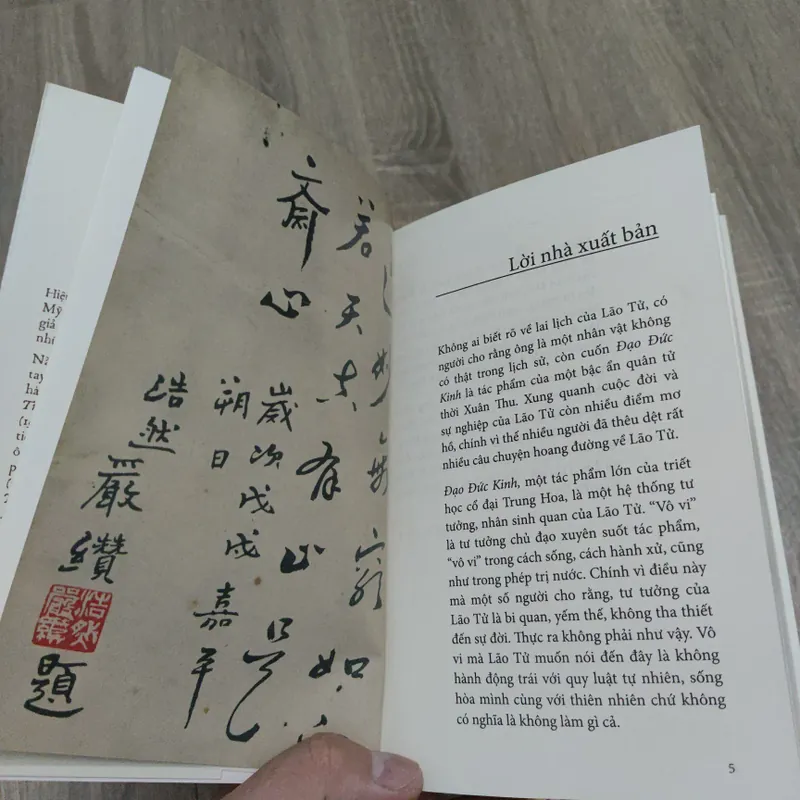 Mỹ
giả
tay
齋心
歲次戊戌嘉平
朔日
浩然嚴纘
題
Lời nhà xuất bản
Không ai biết rõ về lai lịch của Lão Tử, có
người cho rằng ông là một nhân vật không
có thật trong lịch sử, còn cuốn Đạo Đức
Kinh là tác phẩm của một bậc ẩn quân tử
thời Xuân Thu. Xung quanh cuộc đời và
sự nghiệp của Lão Tử còn nhiều điểm mơ
hồ, chính vì thế nhiều người đã thêu dệt rất
nhiều câu chuyện hoang đường về Lão Tử.
Đạo Đức Kinh, một tác phẩm lớn của triết
học cổ đại Trung Hoa, là một hệ thống tư
tưởng, nhân sinh quan của Lão Tử. “Vô vi”
là tư tưởng chủ đạo xuyên suốt tác phẩm,
“vô vi” trong cách sống, cách hành xử, cũng
như trong phép trị nước. Chính vì điều này
mà một số người cho rằng, tư tưởng của
Lão Tử là bi quan, yếm thế, không tha thiết
đến sự đời. Thực ra không phải như vậy. Vô
vi mà Lão Tử muốn nói đến đây là không
hành động trái với quy luật tự nhiên, sống
hòa mình cùng với thiên nhiên chứ không
có nghĩa là không làm gì cả.
5